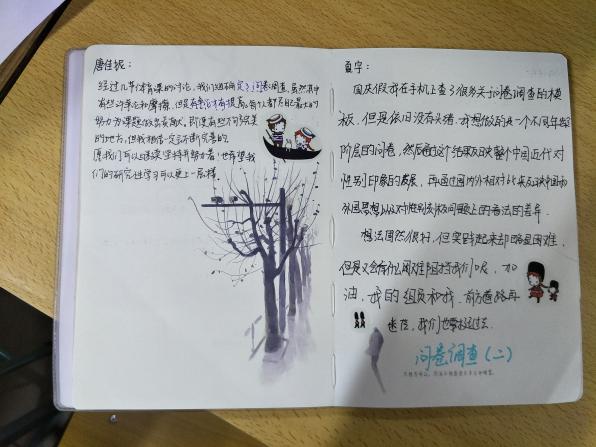 唐佳妮：
经过几节体育课的讨论，我们组确定了问卷调查。虽然其中
有些许争论和摩擦，但是有争论才有提高。每个人都尽自己最大的
努力为课题做出贡献，即便有些不够完美
的地方，但我相信一定会不断完善的。
愿我们可以继续坚持并努力着，也希望我
们的研究性学习可以更上一层楼。
夏宇：
国庆假我在手机上查了很多关于问卷调查的模
板，但是依旧没有头绪。我想做的是一个不同年龄
阶层的问卷，然后通过这个结果反映整个中国近代对
性别印象的发展，再通过国内外相对比来反映中国和
外国思想以及对性别 问题上的看法的差异。
想法固然很好，但实践起来却略显困难，
但是又会有什么困难阻挡我们的呢，加
油，我的组员和我。前方道路再
迷茫，我们也要走过去。
问卷调查（二）